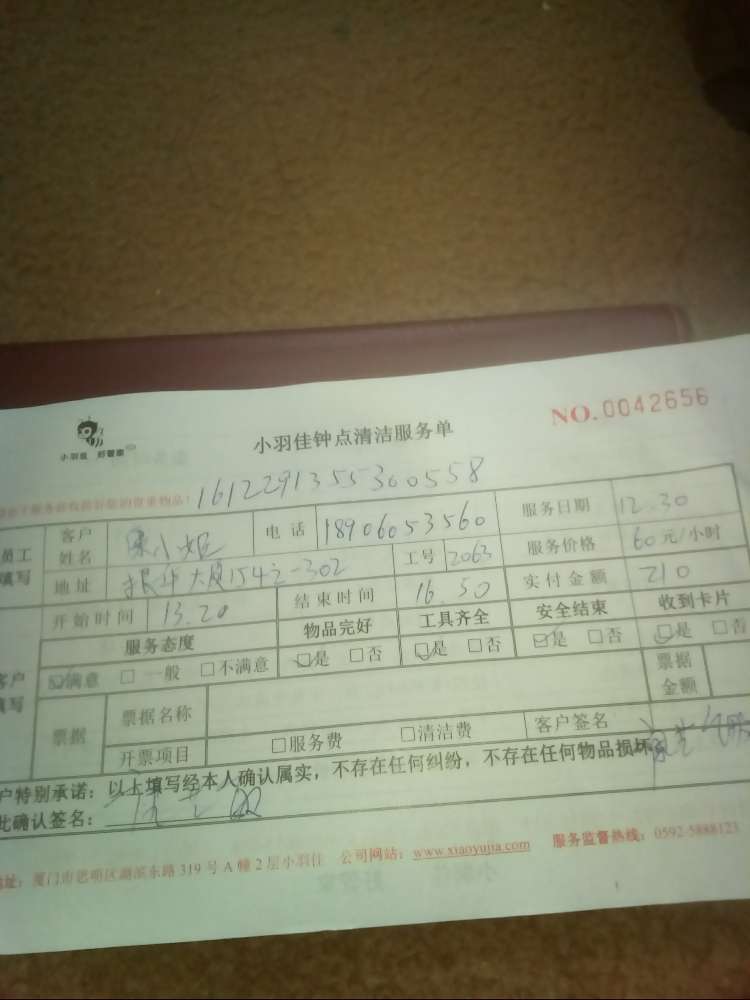 NO.0042656
小羽佳 好管家
小羽佳钟点清洁服务单
1612291355300558
员工填写 客户姓名 陈小姐 电话 18906053560 服务日期 12.30
地址 大厦154之-302 工号 2063 服务价格 60元/小时
开始时间 13.20 结束时间 16.50 实付金额 210
服务态度 物品完好 工具齐全 安全结束 收到卡片
☑满意 □一般 □不满意 ☑是 □否 ☑是 □否 ☑是 □否 ☑是 □否
客户填写 票据 票据名称 票据金额
开票项目 □服务费 □清洁费 客户签名
户特别承诺:以上填写经本人确认属实,不存在任何纠纷,不存在任何物品损坏
此确认签名:
地址:厦门市思明区湖滨东路319号A幢2层小羽佳 公司网站:www.xiaoyujia.com 服务监督热线:0592-5888123